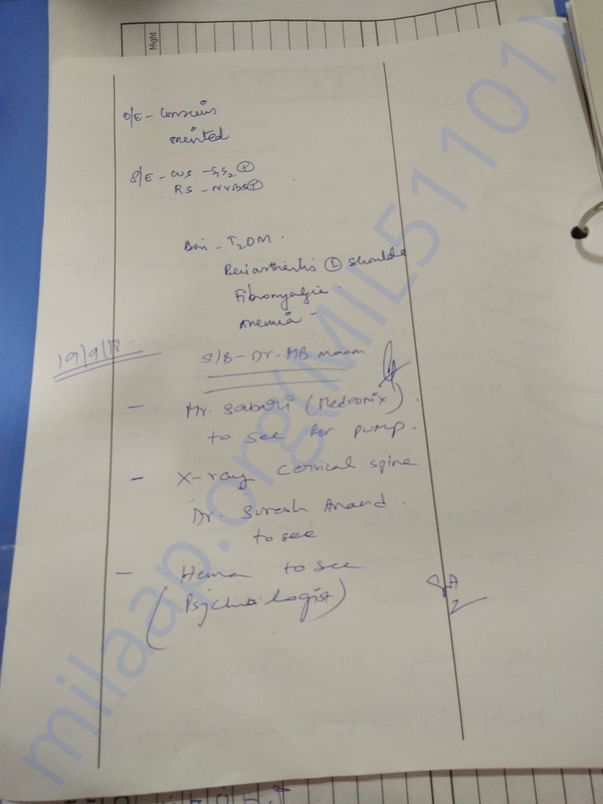 Hight
O/E - Conscious
oriented
S/E - CVS - S1S2 (+)
RS - NVBS (+)
T2DM.
Periarthritis (L) shoulde
Fibromyalgia.
Anemia -
19/9/18.
S/B - Dr. MB maam
- Mr. Sabari (Medronix)
to see for pump.
- X-ray cervical spine
Dr. Suresh Anand.
to see
- Hema to see
(Psychologist)
milaap.org(MIL51101)